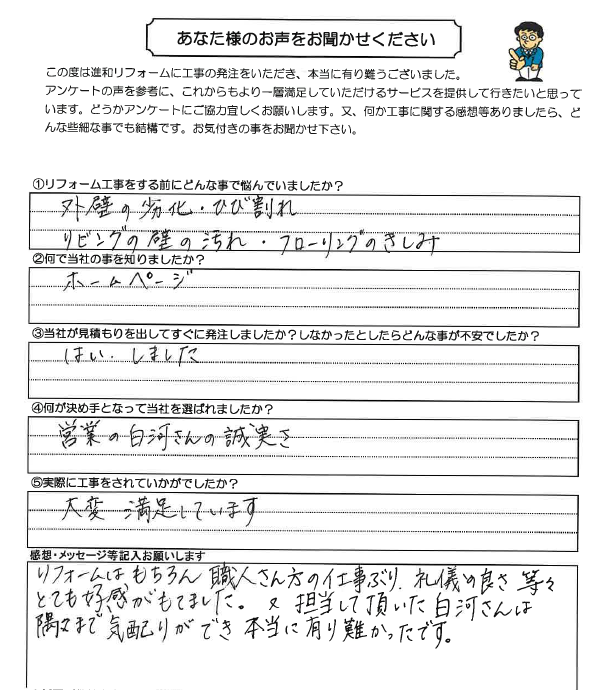 あなた様のお声をお聞かせください
この度は進和リフォームに工事の発注をいただき、本当に有り難うございました。
アンケートの声を参考に、これからもより一層満足していただけるサービスを提供して行きたいと思って
います。どうかアンケートにご協力宜しくお願いします。又、何か工事に関する感想等ありましたら、ど
んな些細な事でも結構です。お気付きの事をお聞かせ下さい。
①リフォーム工事をする前にどんな事で悩んでいましたか？
外壁の劣化・ひび割れ
リビングの壁の汚れ・フローリングのきしみ
②何で当社の事を知りましたか？
ホームページ
③当社が見積もりを出してすぐに発注しましたか？しなかったとしたらどんな事が不安でしたか？
はい．しました
④何が決め手となって当社を選ばれましたか？
営業の白河さんの誠実さ
⑤実際に工事をされていかがでしたか？
大変 満足しています
感想・メッセージ等記入お願いします
リフォームはもちろん 職人さん方の仕事ぶり．礼儀の良さ 等々
とても好感がもてました。又 担当して頂いた白河さんは
隅々まで気配りができ 本当に有り難かったです。